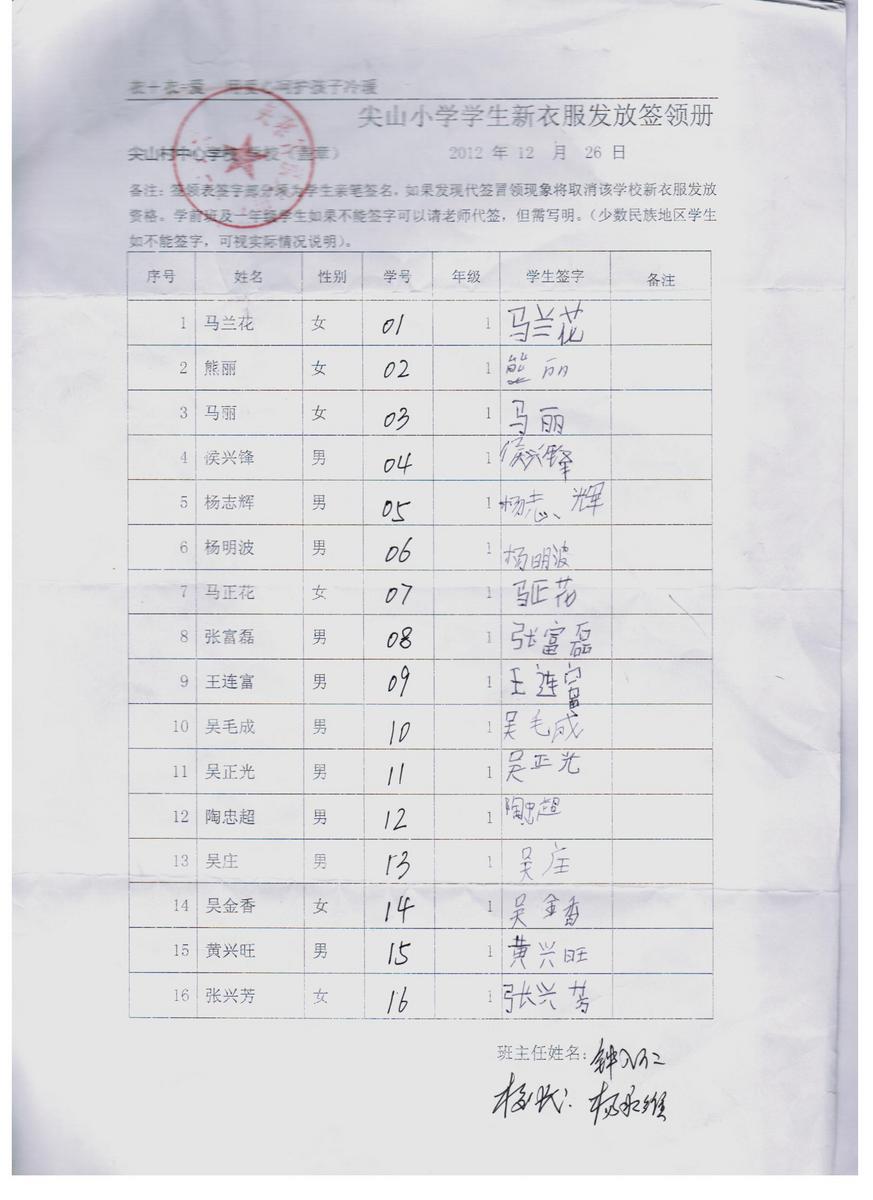 衣+衣=爱 用爱心呵护孩子冷暖
尖山小学学生新衣服发放签领册
尖山村中心学校 学校（盖章） 2012 年 12 月 26 日
备注：签领表签字部分须为学生亲笔签名，如果发现代签冒领现象将取消该学校新衣服发放
资格。学前班及一年级学生如果不能签字可以请老师代签，但需写明。（少数民族地区学生
如不能签字，可视实际情况说明）。
序号 姓名 性别 学号 年级 学生签字 备注
1 马兰花 女 01 1 马兰花
2 熊丽 女 02 1 熊丽
3 马丽 女 03 1 马丽
4 侯兴锋 男 04 1 侯兴锋
5 杨志辉 男 05 1 杨志、辉
6 杨明波 男 06 1 杨明波
7 马正花 女 07 1 马正花
8 张富磊 男 08 1 张富磊
9 王连富 男 09 1 王连富
10 吴毛成 男 10 1 吴毛成
11 吴正光 男 11 1 吴正光
12 陶忠超 男 12 1 陶忠超
13 吴庄 男 13 1 吴庄
14 吴金香 女 14 1 吴金香
15 黄兴旺 男 15 1 黄兴旺
16 张兴芳 女 16 1 张兴芳
班主任姓名：
校长：杨永维